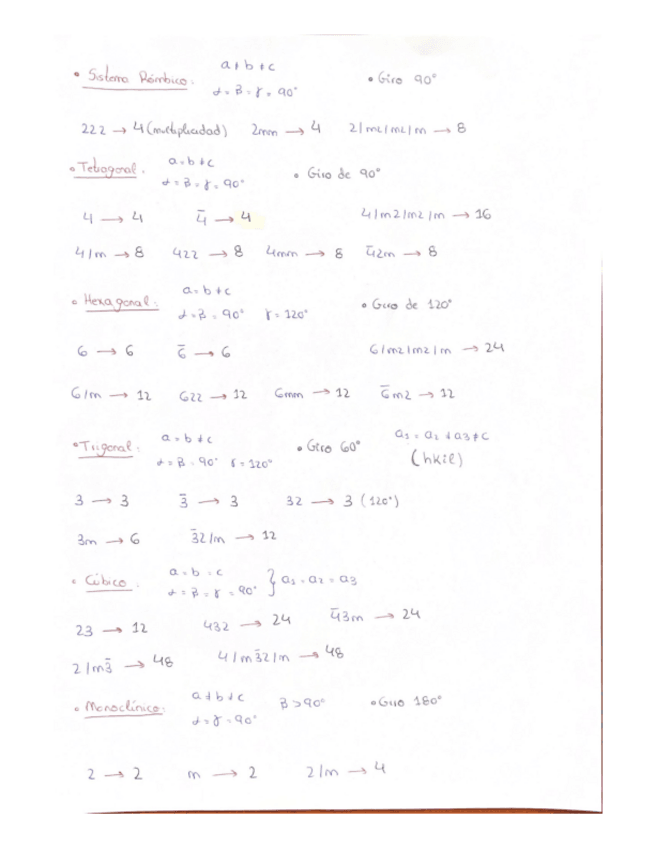 • Sistema Rómbico: a ≠ b ≠ c • Giro 90°
α = β = γ = 90°
222 → 4 (multiplicidad) 2mm → 4 2/m2/m2/m → 8
• Tetragonal: a = b ≠ c • Giro de 90°
α = β = γ = 90°
4 → 4 4̄ → 4 4/m2/m2/m → 16
4/m → 8 422 → 8 4mm → 8 4̄2m → 8
• Hexagonal: a = b ≠ c • Giro de 120°
α = β = 90° γ = 120°
6 → 6 6̄ → 6 6/m2/m2/m → 24
6/m → 12 622 → 12 6mm → 12 6̄m2 → 12
• Trigonal: a = b ≠ c • Giro 60° a1 = a2 ≠ a3 ≠ c
α = β = 90° γ = 120° (hkil)
3 → 3 3̄ → 3 32 → 3 (120°)
3m → 6 3̄2/m → 12
• Cúbico: a = b = c } a1 = a2 = a3
α = β = γ = 90°
23 → 12 432 → 24 4̄3m → 24
2/m3̄ → 48 4/m3̄2/m → 48
• Monoclínico: a ≠ b ≠ c β > 90° • Giro 180°
α = γ = 90°
2 → 2 m → 2 2/m → 4